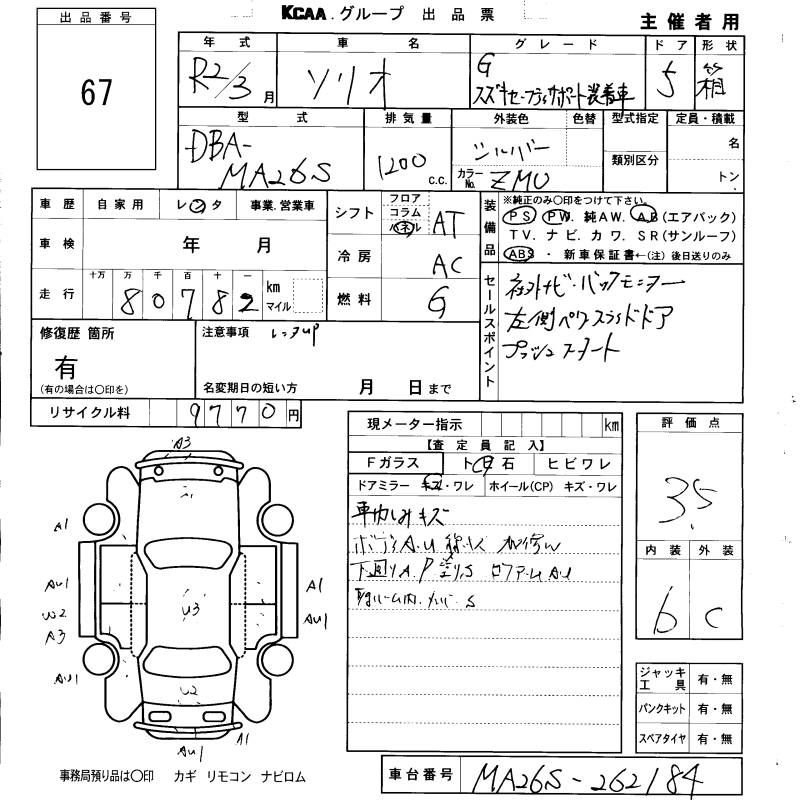 KCAA.グループ 出品票
主催者用
出品番号
67
年式 車名 グレード ドア 形状
R2/3月 ソリオ G 5 箱
スズキセーフティサポート装着車
型式 排気量 外装色 色替 型式指定 定員・積載
DBA-MA26S 1200 c.c. シルバー 名
カラーNo. ZMU 類別区分 トン
車歴 自家用 レンタ 事業.営業車
車検 年 月
走行 十万 万 千 百 十 一 km マイル
8 0 7 8 2
シフト フロア コラム パネル AT
冷房 AC
燃料 G
装備品 ※純正のみ〇印をつけて下さい。
PS PW. 純AW. AB(エアバック)
TV. ナビ. カワ. SR(サンルーフ)
ABS ・ 新車保証書←(注) 後日送りのみ
セールスポイント
社外ナビ・バックモニター
左側パワースライドドア
プッシュスタート
修復歴 箇所
有
(有の場合は〇印を)
注意事項 レンタup
名変期日の短い方 月 日まで
リサイクル料 9770円
現メーター指示 km
【査定員記入】
Fガラス ト 石 ヒビワレ
ドアミラー キズ・ワレ ホイール(CP) キズ・ワレ
車内しみキズ
ボデーA.U
下回りA.P
評価点
3.5
内装 外装
6 C
ジャッキ工具 有・無
パンクキット 有・無
スペアタイヤ 有・無
A3
A1
AU1 A1
W2 U3 AU1
A3
AU1
U2
AU1 A1
事務局預り品は〇印 カギ リモコン ナビロム
車台番号 MA26S-262184